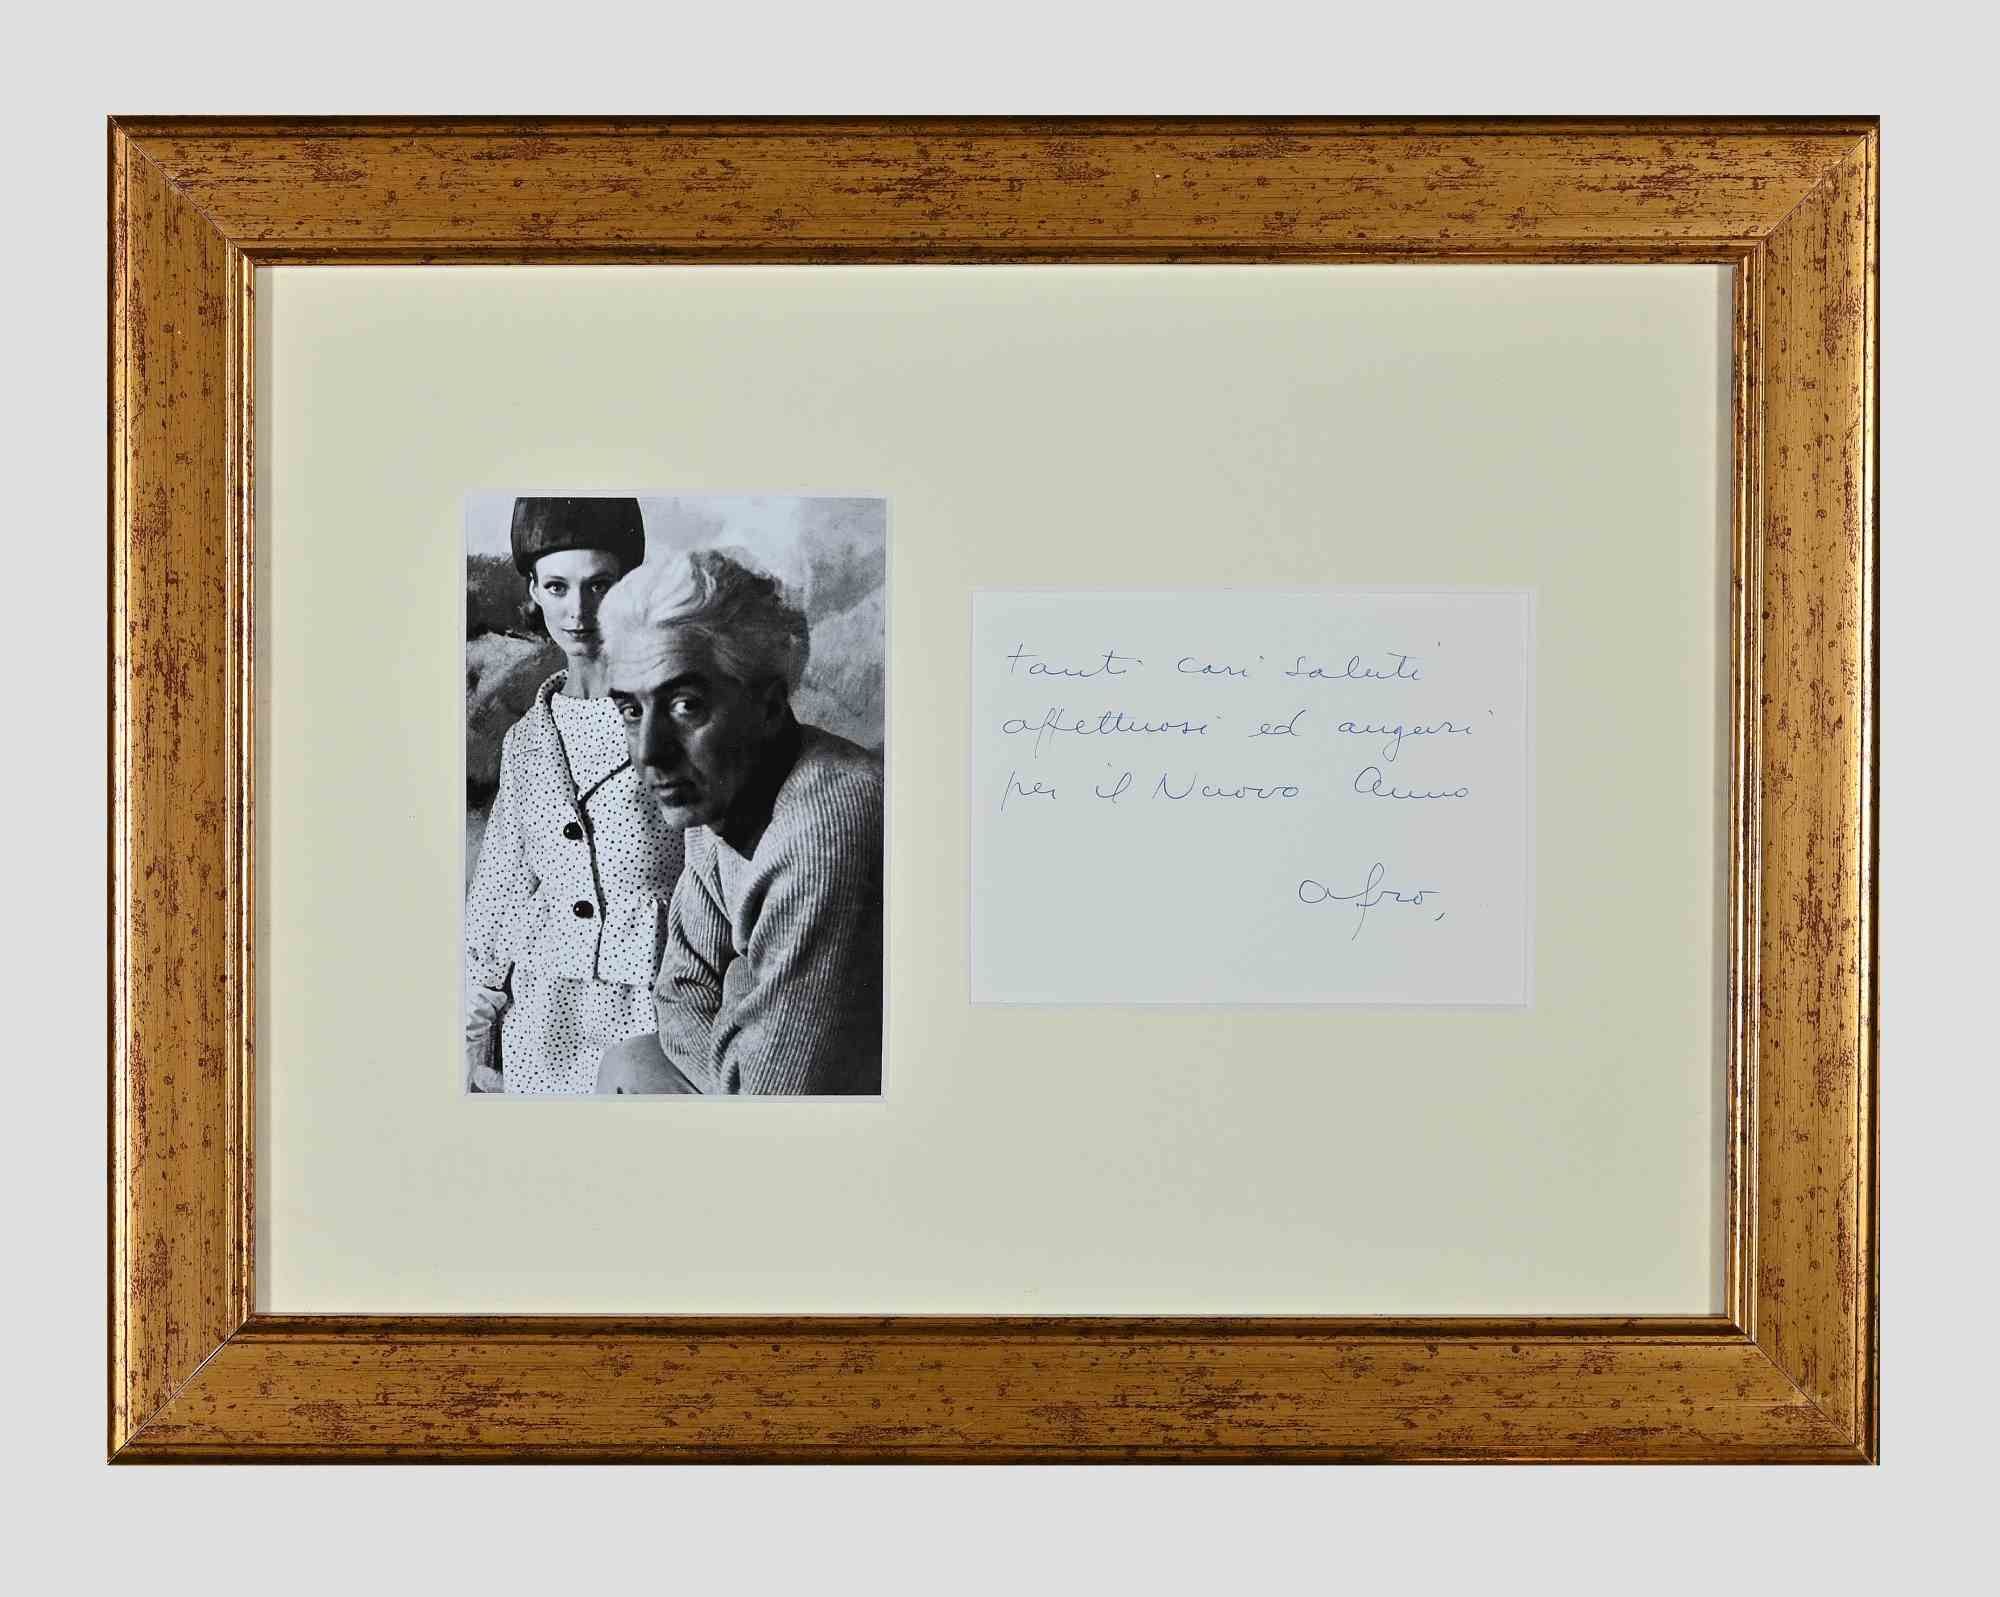 tanti cari saluti
affettuosi ed auguri
per il Nuovo Anno
afro,